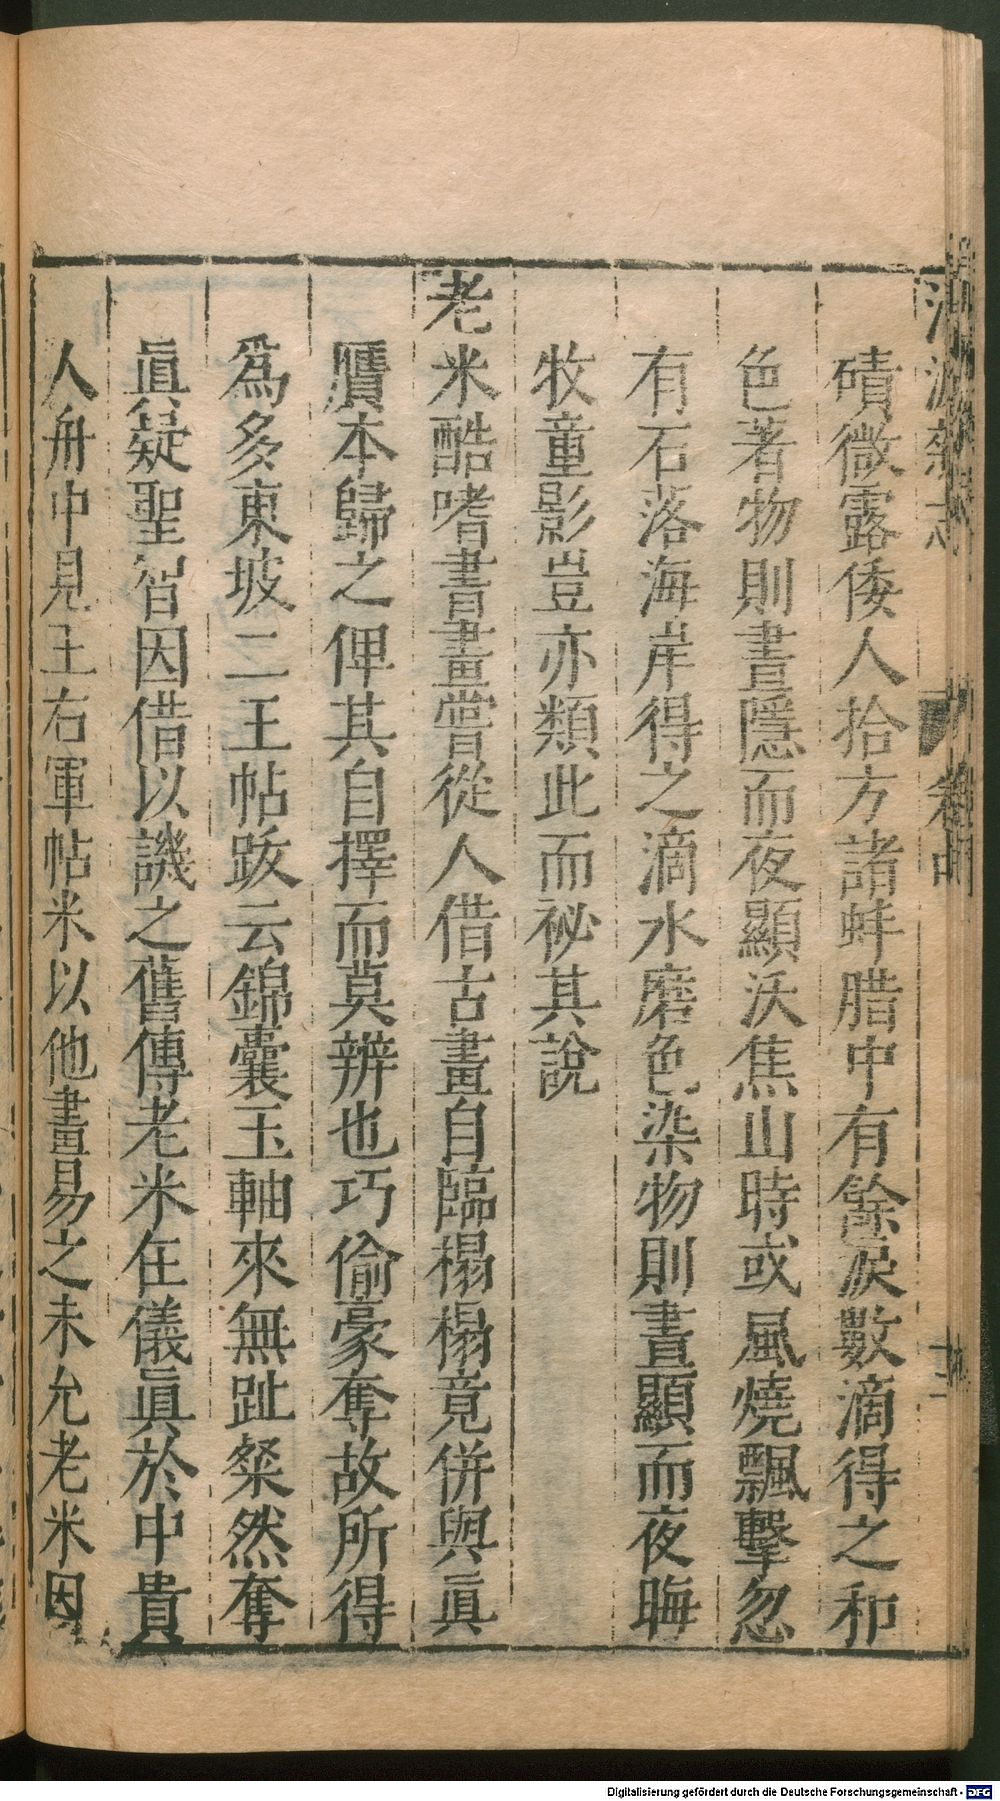 磧微露倭人拾方諸蚌腊中有餘淚數滴得之和
色著物則晝隱而夜顯沃焦山時或風燒飄擊忽
有石落海岸得之滴水磨色染物則晝顯而夜晦
牧童影豈亦類此而祕其說
老米酷嗜書畫嘗從人借古畫自臨榻榻竟併與眞
贋本歸之俾其自擇而莫辨也巧偷豪奪故所得
爲多東坡二王帖跋云錦囊玉軸來無趾粲然奪
眞疑聖智因借以譏之舊傳老米在儀眞於中貴
人舟中見王右軍帖米以他畫易之未允老米因
Digitalisierung gefördert durch die Deutsche Forschungsgemeinschaft - DFG